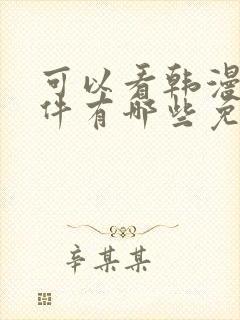 可以看韩漫
件有哪些免
辛某某